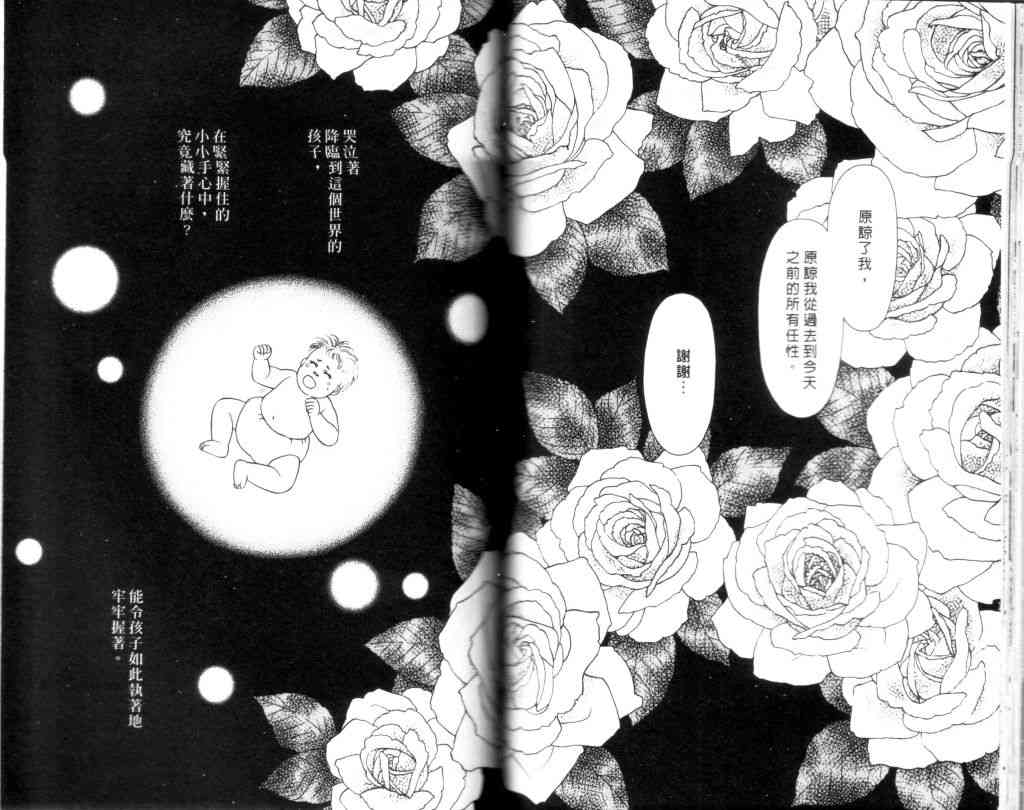 原諒了我，
原諒我從過去到今天
之前的所有任性。
謝謝…
哭泣著
降臨到這個世界的
孩子，
在緊緊握住的
小小手心中，
究竟藏著什麼？
能令孩子如此執著地
牢牢握著。